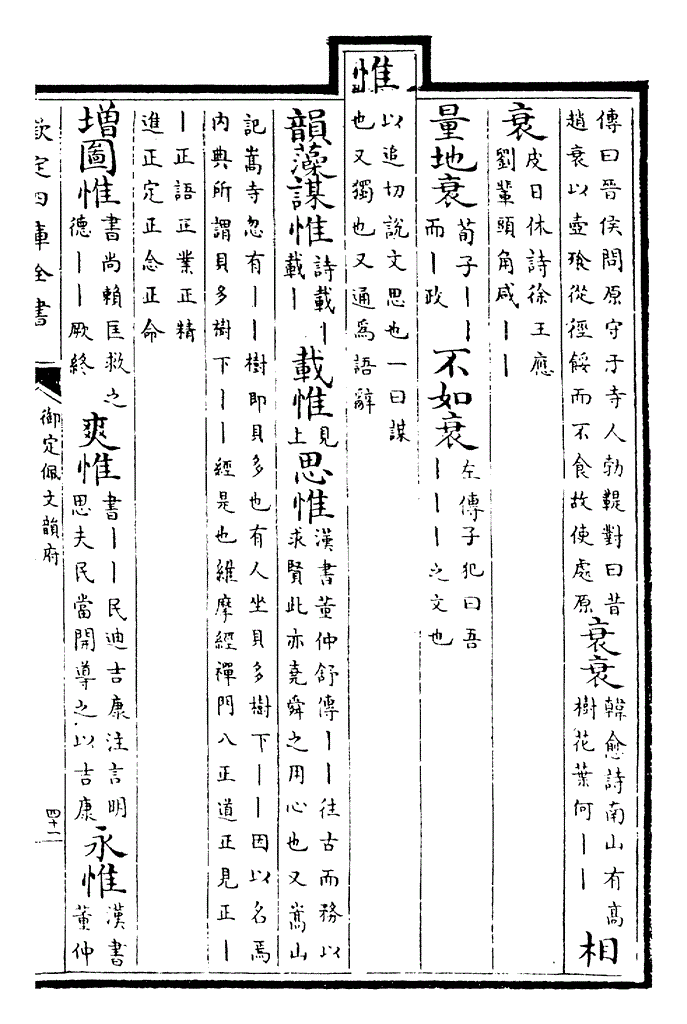 傳曰晉侯問原守于寺人勃鞮對曰昔
趙衰以壺飱從徑餒而不食故使處原
衰衰
韓愈詩南山有高
樹花葉何丨丨
相
衰
皮日休詩徐王應
劉輩頭角咸丨丨
量地衰
荀子丨丨
而丨政
不如衰
左傳子犯曰吾
丨丨丨之文也
惟
以追切說文思也一曰謀
也又獨也又通爲語辭
韻藻謀惟
詩載丨
載丨
載惟
見
上
思惟
漢書董仲舒傳丨丨往古而務以
求賢此亦堯舜之用心也又嵩山
記嵩寺忽有丨丨樹即貝多也有人坐貝多樹下丨丨因以名焉
内典所謂貝多樹下丨丨經是也維摩經禪門八正道正見正丨
丨正語正業正精
進正定正念正命
增圖惟
書尚賴匡救之
德丨丨厥終
爽惟
書丨丨民迪吉康注言明
思夫民當開導之以吉康
永惟
漢書
董仲
欽定四庫全書
御定佩文韻府
四十二